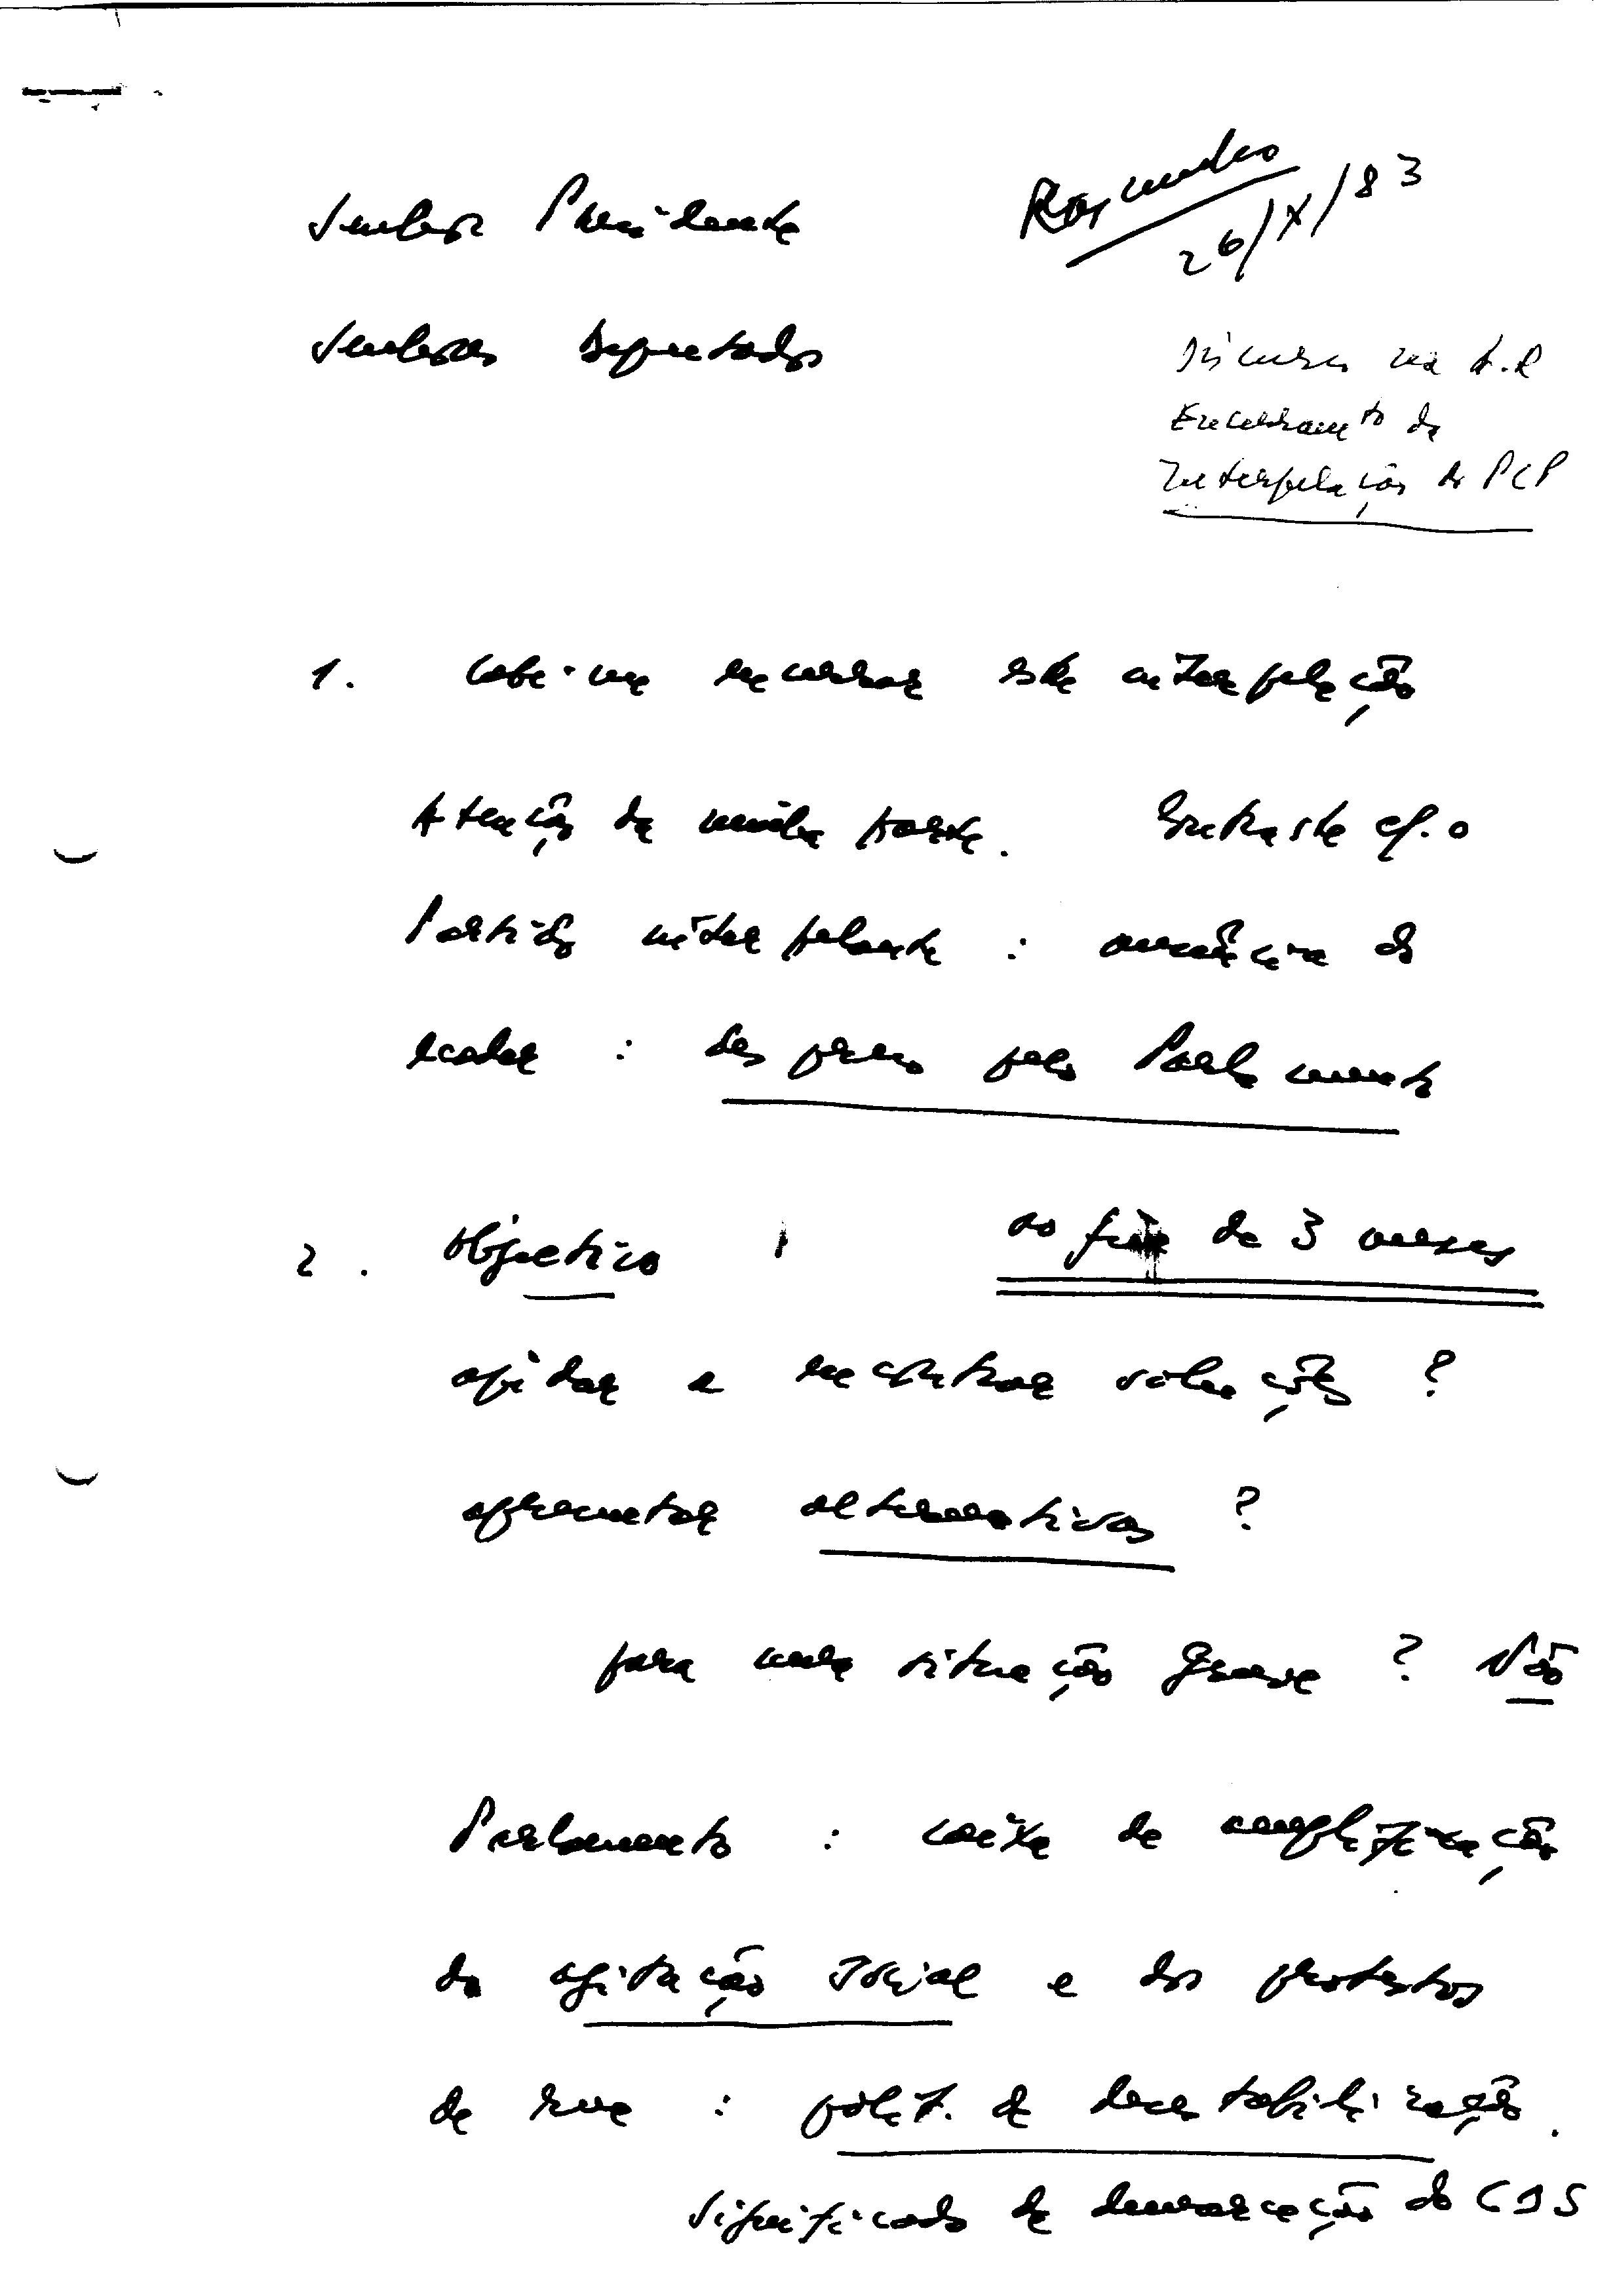 Senhor Presidente
Rascunho
26/X/83
Senhores Deputados
Discurso na A.R
Encerramto da
Interpelação do PCP
1. Cabe-me encerrar esta interpelação
Atenção da minha parte. Contraste c/. o
Partido interpelante : ausência do
leader : desprezo pelo Parlamento
2. Objectivo ao fim de 3 meses
ajudar a encontrar soluções ?
apresentar alternativas ?
para uma situação grave ? Não
Parlamento : caixa de amplificação
da agitação social e dos protestos
de rua : polít. de destabilização.
Significado da demarcação do CDS